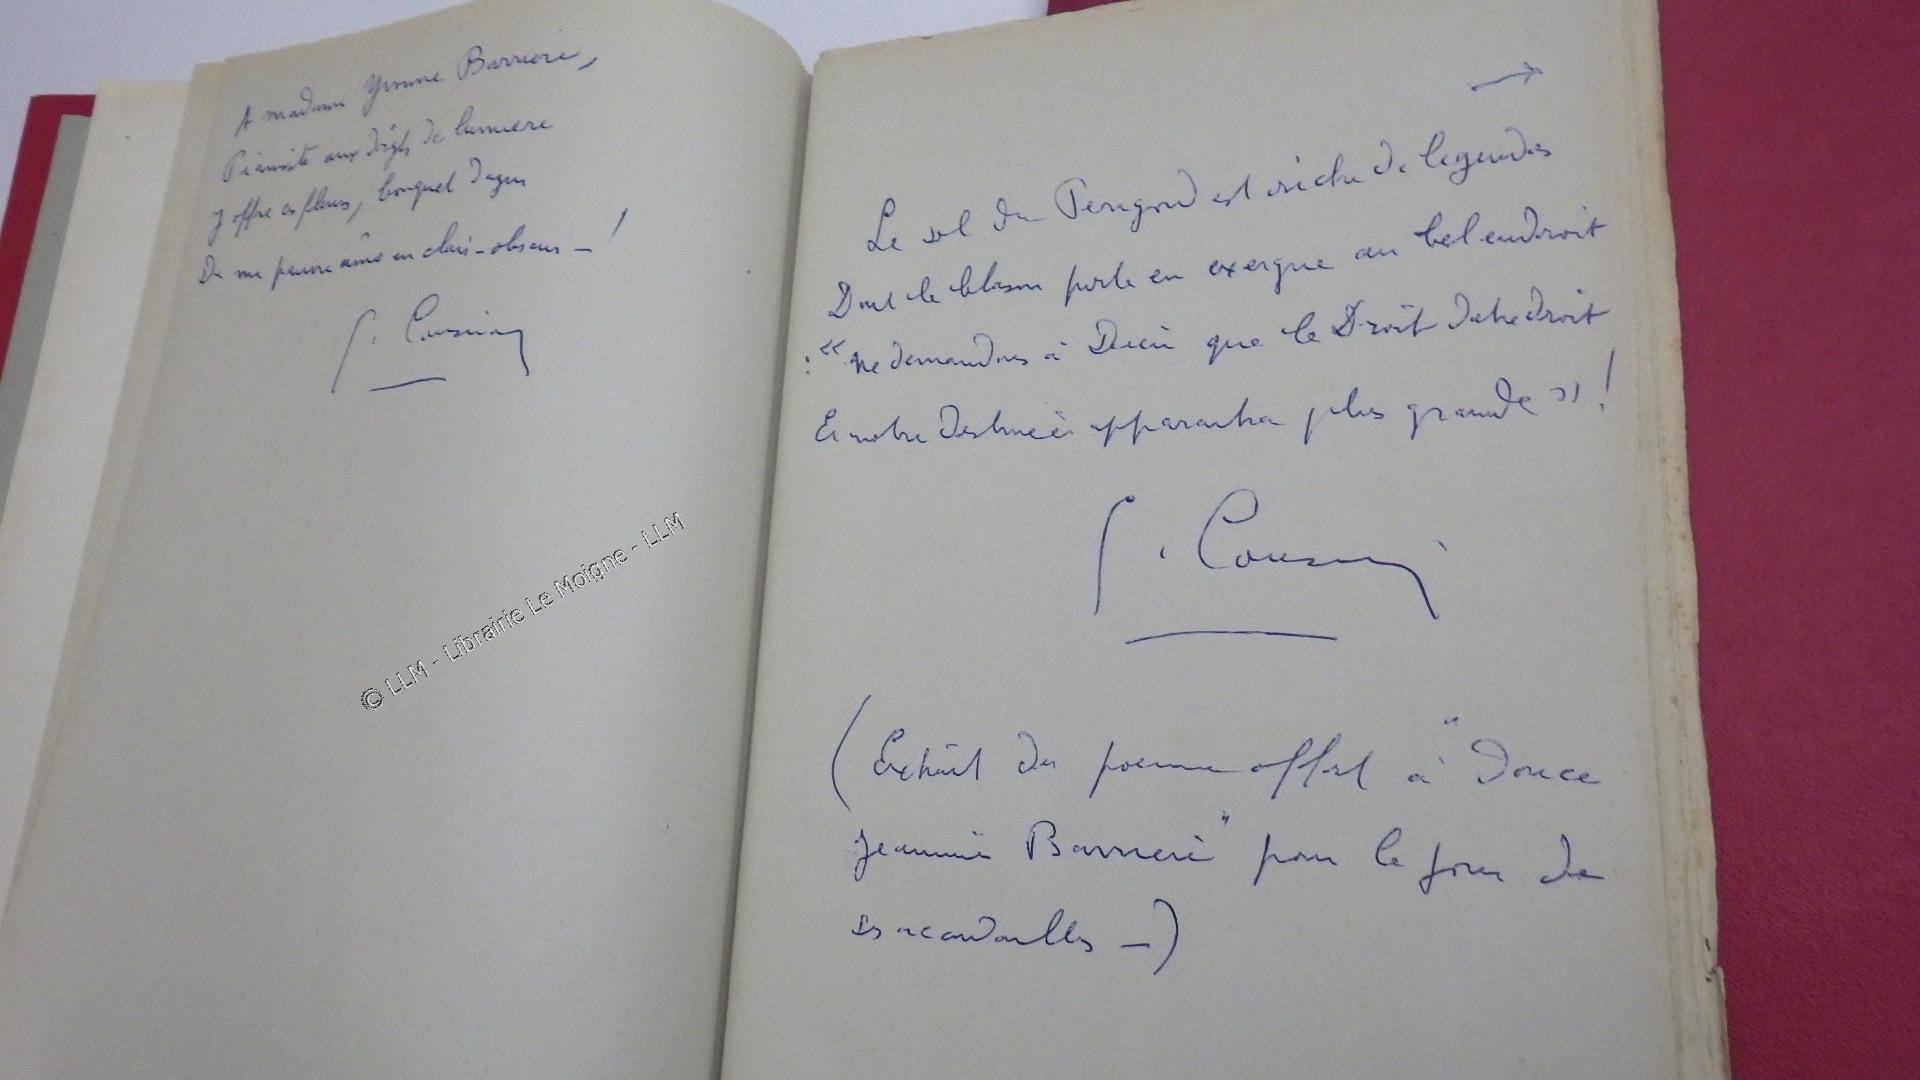 A madame Yvonne Barriere,
Pianiste aux doigts de lumiere
J'offre ces fleurs, bouquet d'azur
De ma pauvre âme en clair-obscur – !
Le sol du Perigord est riche de legendes
Dont le blason porte en exergue au bel endroit
: " Ne demandons à Dieu que le Droit d'etre droit
Et notre destinée apparaitra plus grande " !
(Extrait du poeme offert à "Douce
Jeannine Barriere" pour le jour de
ses accordailles –)
© LLM - Librairie Le Moigne - LLM